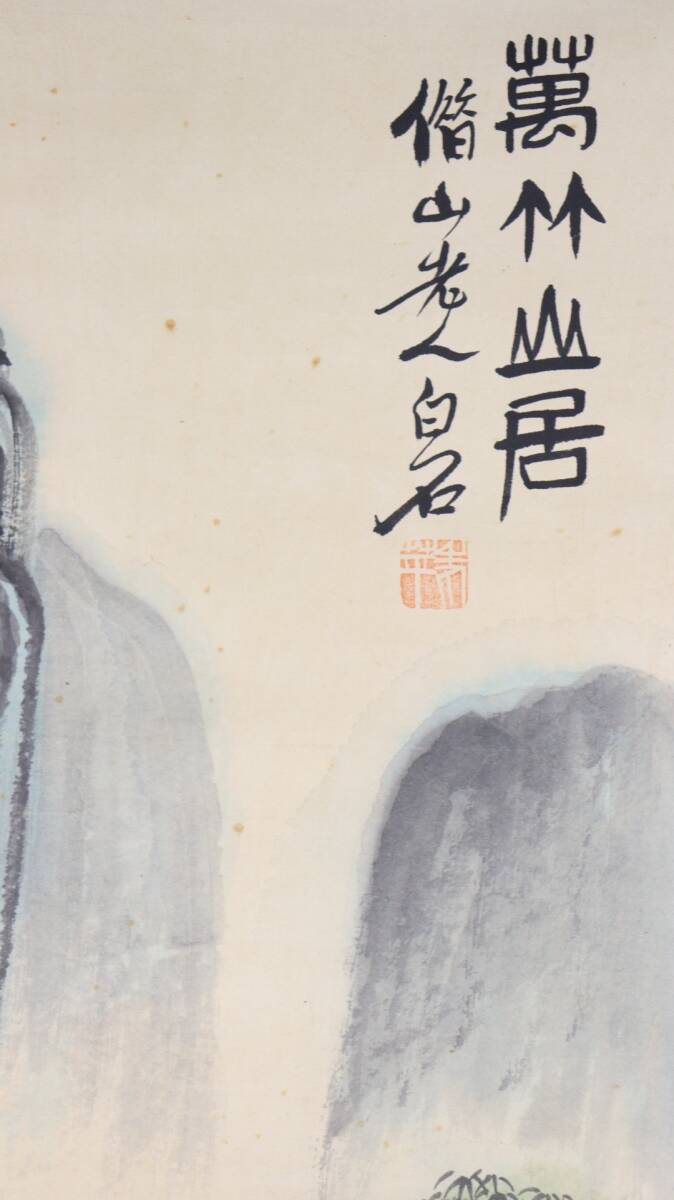 萬竹山居
借山老人白石